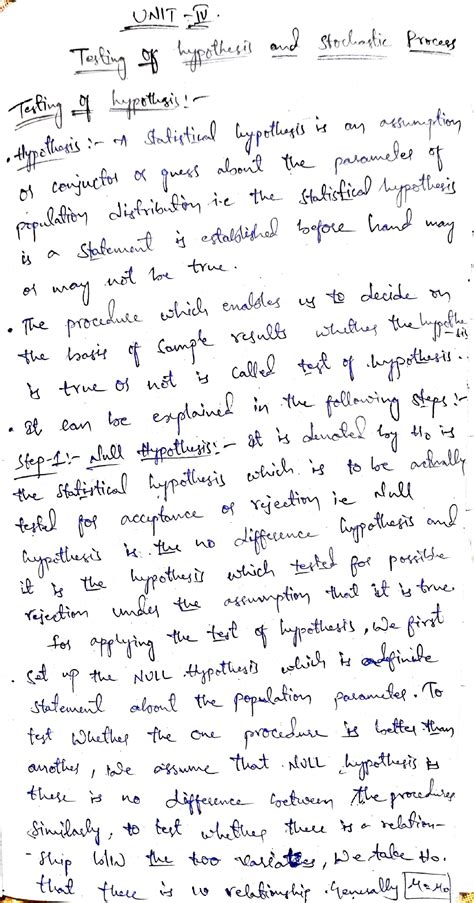 UNIT - IV.
Testing of hypothesis and Stochastic Process
Testing of hypothesis :-
• Hypothesis :- A Statistical hypothesis is an assumption
or conjuctor or guess about the parameter of
population distribution i.e the Statistical hypothesis
is a Statement is established before hand may
or may not be true.
• The procedure which enables us to decide on
the basis of Sample results whether the hypothe
-sis
is true or not is called test of hypothesis.
• It can be explained in the following steps :-
Step-1 :- Null Hypothesis :- It is denoted by H0 is
the Statistical hypothesis which is to be actually
tested for acceptance or rejection ie Null
hypothesis is the no difference hypothesis and
it is the hypothesis which tested for possible
rejection under the assumption that it is true.
for applying the test of hypothesis, We first
• Set up the NULL Hypothesis which is a definite
Statement about the population parameter. To
test whether the one procedure is better than
another, We assume that NULL hypothesis is
there is no difference between the procedures
Similarly, to test whether there is a relation-
-ship b/w the two Variates, We take H0.
that there is no relationship. Generally μ=μ0